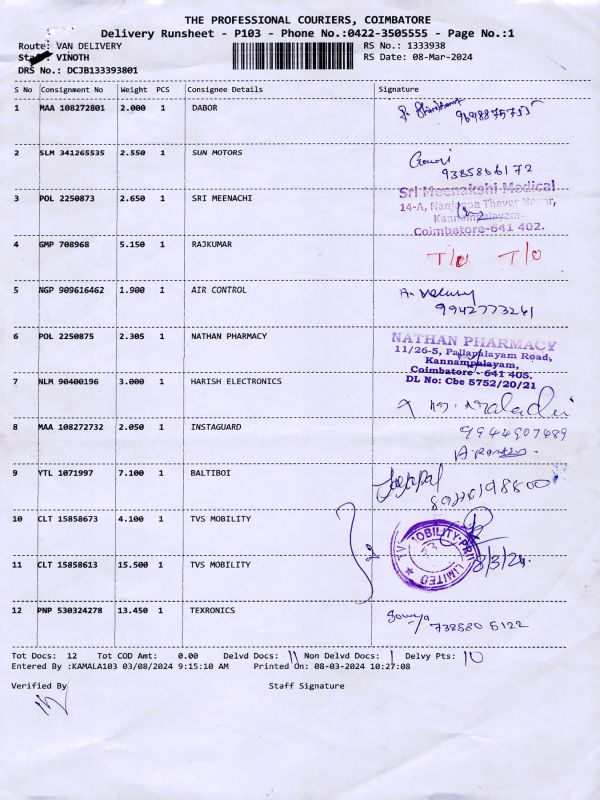 THE PROFESSIONAL COURIERS, COIMBATORE
Delivery Runsheet - P103 - Phone No.:0422-3505555 - Page No.:1
Route: VAN DELIVERY RS No.: 1333938
Staff: VINOTH RS Date: 08-Mar-2024
DRS No.: DCJB133393801
S No Consignment No Weight PCS Consignee Details Signature
1 MAA 108272801 2.000 1 DABOR
2 SLM 341265535 2.550 1 SUN MOTORS Gowri
9385866172
3 POL 2250873 2.650 1 SRI MEENACHI Sri Meenakshi Medical
14-A, Nanjappa Thevar Nagar,
Kannampalayam
Coimbatore-641 402.
4 GMP 708968 5.150 1 RAJKUMAR T/O T/O
5 NGP 909616462 1.900 1 AIR CONTROL
9942773261
6 POL 2250875 2.305 1 NATHAN PHARMACY NATHAN PHARMACY
11/26-5, Pallapalayam Road,
Kannampalayam,
Coimbatore - 641 405.
DL No: Cbe 5752/20/21
7 NLM 90400196 3.000 1 HARISH ELECTRONICS
8 MAA 108272732 2.050 1 INSTAGUARD
9944907489
9 YTL 1071997 7.100 1 BALTIBOI Jayapal
10 CLT 15858673 4.100 1 TVS MOBILITY
MOBILITY PRI
LIMITED
8/3/24.
11 CLT 15858613 15.500 1 TVS MOBILITY
12 PNP 530324278 13.450 1 TEXRONICS Sowmya
738580 5122
Tot Docs: 12 Tot COD Amt: 0.00 Delvd Docs: 11 Non Delvd Docs: 1 Delvy Pts: 10
Entered By :KAMALA103 03/08/2024 9:15:10 AM Printed On: 08-03-2024 10:27:08
Verified By Staff Signature